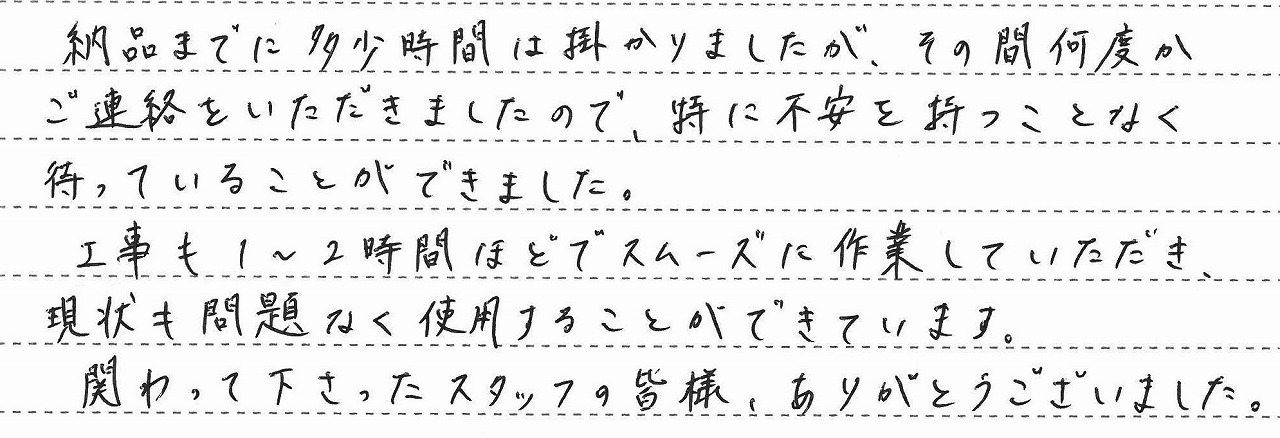 納品までに多少時間は掛かりましたが、その間何度か
ご連絡をいただきましたので、特に不安を持つことなく
待っていることができました。
工事も1~2時間ほどでスムーズに作業していただき、
現状も問題なく使用することができています。
関わって下さったスタッフの皆様、ありがとうございました。